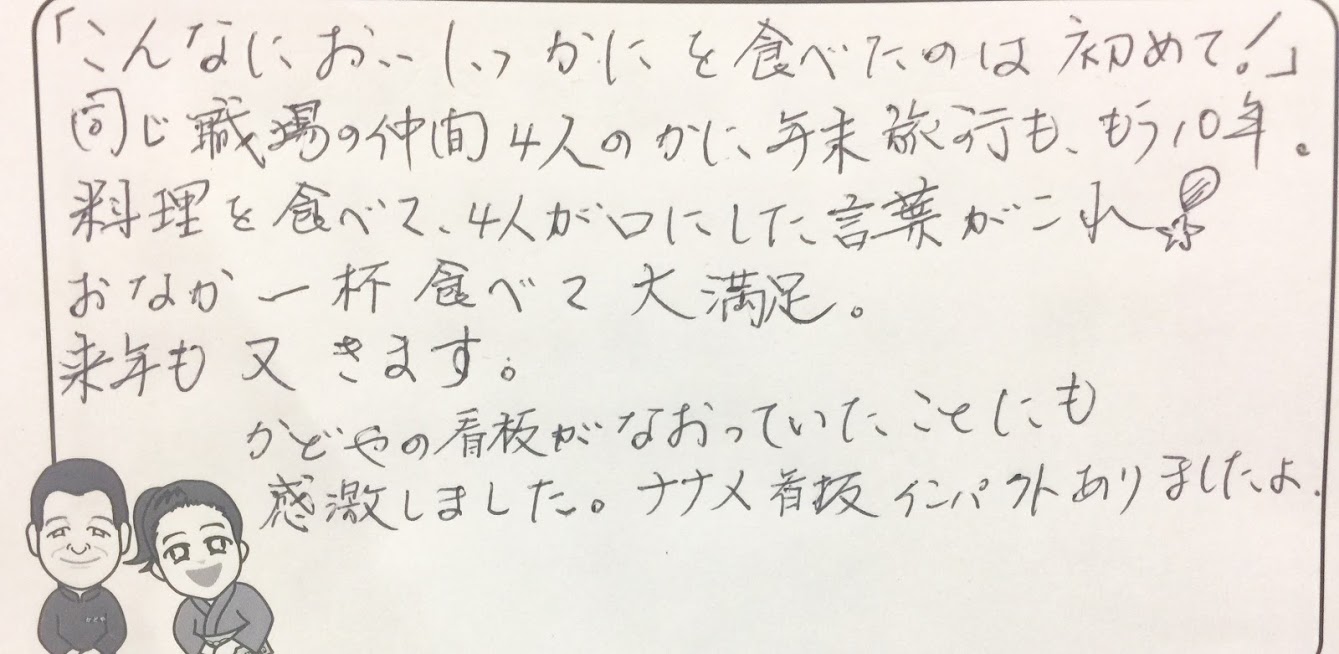 「こんなにおいしいかにを食べたのは初めて!」
同じ職場の仲間4人のかに年末旅行も、もう10年。
料理を食べて、4人が口にした言葉がこれ!
おなか一杯食べて大満足。
来年も又きます。
かどやの看板がなおっていたことにも
感激しました。ナナメ看板インパクトありましたよ.